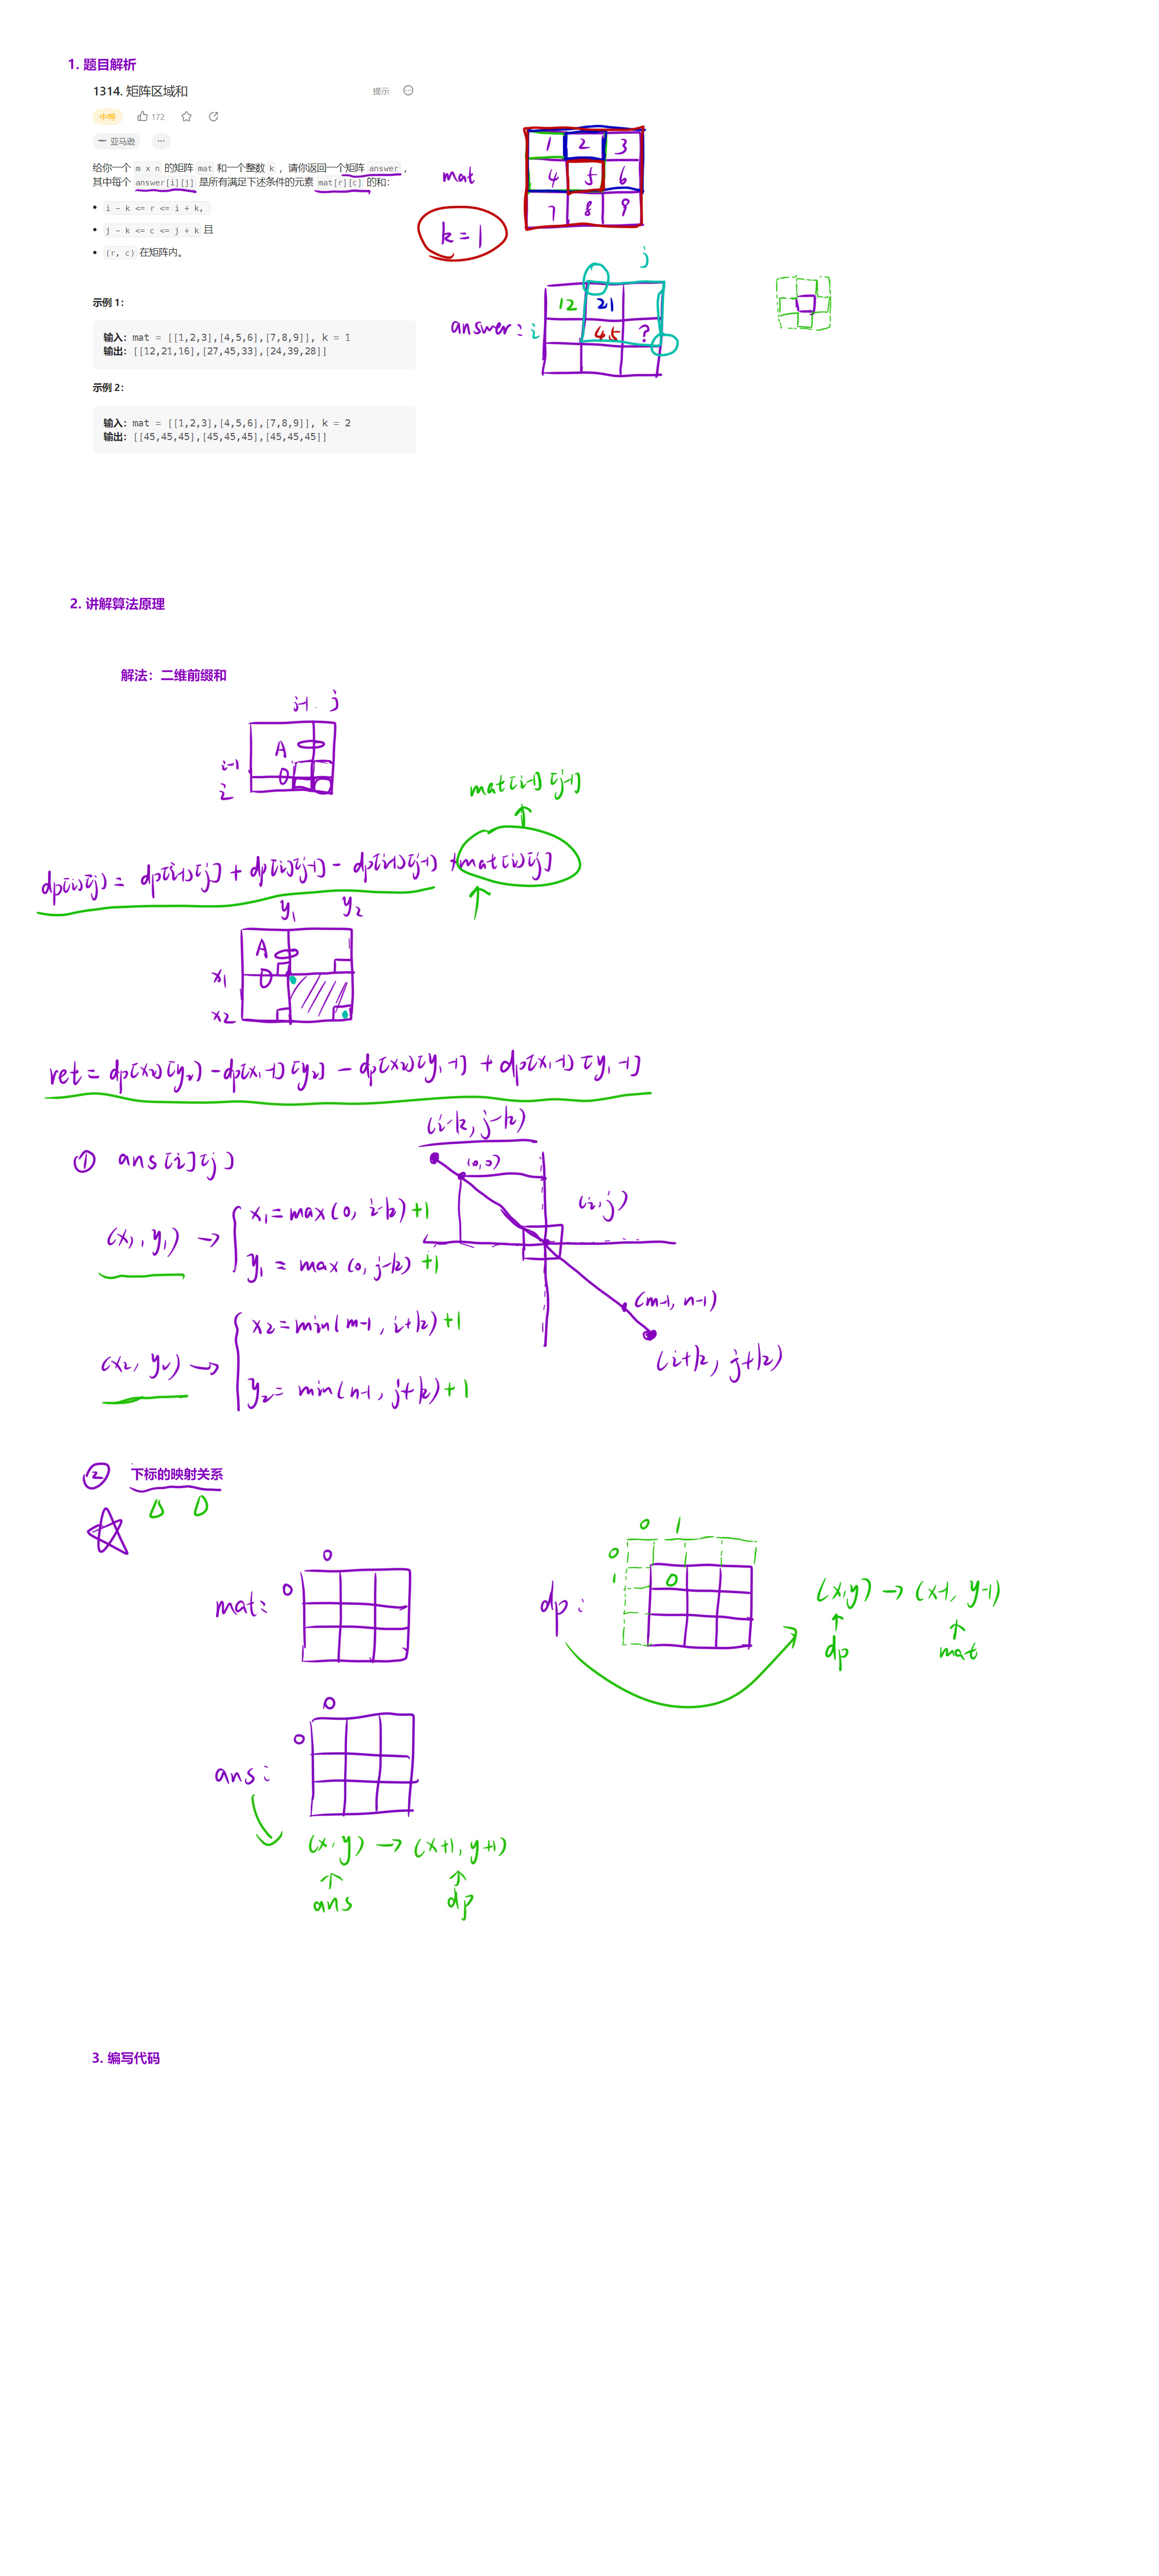 1. 题目解析
1314. 矩阵区域和
提示
中等
172
亚马逊
...
给你一个 m x n 的矩阵 mat 和一个整数 k ，请你返回一个矩阵 answer ，
其中每个 answer[i][j] 是所有满足下述条件的元素 mat[r][c] 的和：
• i - k <= r <= i + k,
• j - k <= c <= j + k 且
• (r, c) 在矩阵内。
mat
1 2 3
4 5 6
7 8 9
k = 1
j
answer:
i
12 21
45 ?
示例 1：
输入：mat = [[1,2,3],[4,5,6],[7,8,9]], k = 1
输出：[[12,21,16],[27,45,33],[24,39,28]]
示例 2：
输入：mat = [[1,2,3],[4,5,6],[7,8,9]], k = 2
输出：[[45,45,45],[45,45,45],[45,45,45]]
2. 讲解算法原理
解法：二维前缀和
j-1 j
A
i-1
i
mat[i-1][j-1]
dp[i][j] = dp[i-1][j] + dp[i][j-1] - dp[i-1][j-1] + mat[i][j]
y1 y2
A
x1
x2
ret = dp[x2][y2] - dp[x1-1][y2] - dp[x2][y1-1] + dp[x1-1][y1-1]
① ans[i][j]
(i-k, j-k)
(0,0)
(i,j)
(x1, y1) → x1 = max(0, i-k) +1
y1 = max(0, j-k) +1
(m-1, n-1)
(i+k, j+k)
(x2, y2) → x2 = min(m-1, i+k) +1
y2 = min(n-1, j+k) +1
② 下标的映射关系
mat:
0
0
dp:
0 1
0
1 0
(x,y) → (x-1, y-1)
dp mat
ans:
0
0
(x,y) → (x+1, y+1)
ans dp
3. 编写代码